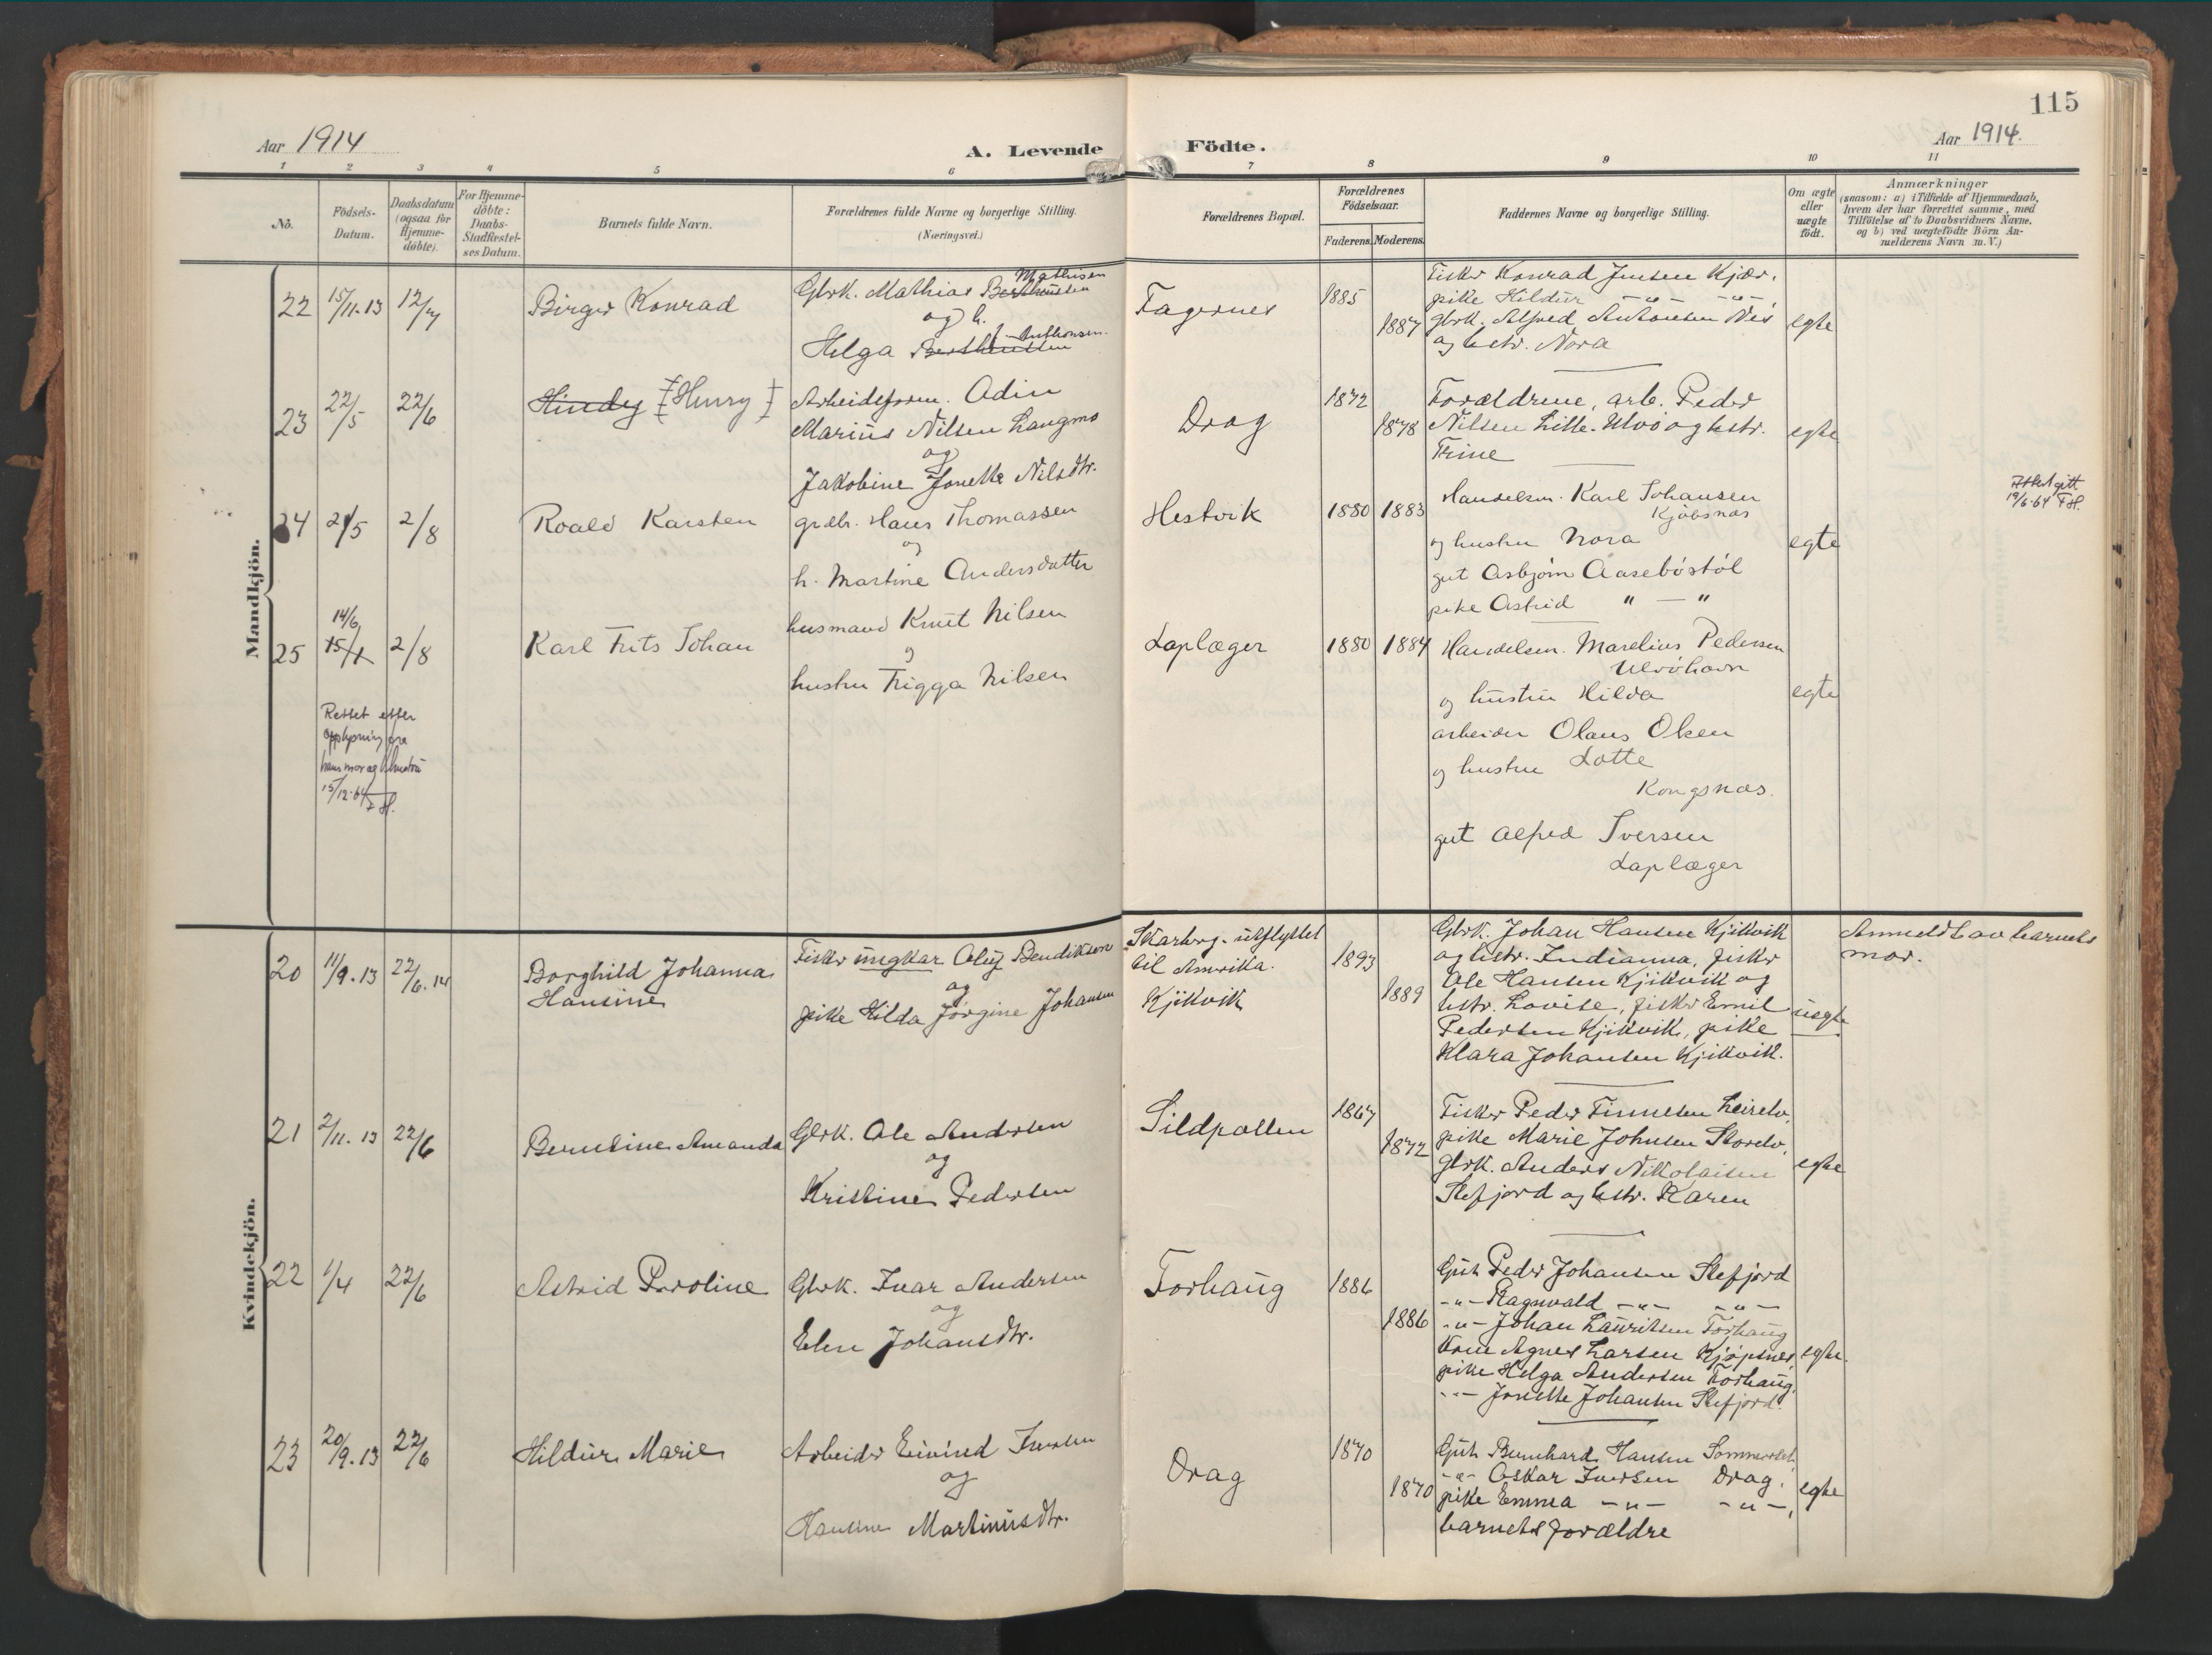 115
Aar 1914
A. Levende
Födte.
Aar 1914.
1 2 3 4 5 6 7 8 9 10 11
No.
Födsels-
Datum.
Daabsdatum
(ogsaa for
Hjemme-
döbte).
For Hjemme-
döbte:
Daabs-
Stadfæstel-
ses Datum.
Barnets fulde Navn.
Forældrenes fulde Navne og borgerlige Stilling.
(Næringsvei.)
Forældrenes Bopæl.
Forældrenes
Födselsaar.
Faderens. Moderens.
Faddernes Navne og borgerlige Stilling.
Om ægte
eller
uægte
födt.
Anmærkninger
(saasom: a) i Tilfælde af Hjemmedaab,
hvem der har forrettet samme, med
Tilföielse af to Daabsvidners Navne,
og b) ved uægtefödte Börn An-
melderens Navn m.V.)
Mandkjön.
22
15/11.13
12/7
Birger Konrad
Mathisen
Gbrk. Mathias Bertheussen
og h.
J. Anthonsen.
Helga Bertheussen
Fagernes
1885
1887
Fisker Konrad Jensen Kjær,
pike Hildur -"- -"-,
gbrk. Alfred Antonsen Nes
og hstr. Nora
egte
23
22/5
22/6
Hindey [Henry]
Arbeidsform. Odin
Marius Nilsen Langmo
og
Jakobine Jonette Nilsdtr.
Drag
1872
1878
Forældrene, arb. Peder
Nilsen Lille-Ulvö og hstr.
Trine
egte
24
21/5
2/8
Roald Karsten
grdbr. Hans Thomassen
og
h. Martine Andersdatter
Hestvik
1880 1883
Handelsm. Karl Johansen
Kjöbsnæs
og hustru Nora
gut Asbjörn Aasebóstöl
pike Astrid " — "
egte
Attest gitt
19/6-64 FH.
25
14/6
15/7
2/8
Karl Frits Johan
husmand Knut Nilsen
og
hustru Frigga Nilsen
Laplæger
1880 1884
Handelsm. Marelius Pedersen
Ulvöhavn
og hustru Hilda
arbeider Olaus Olsen
og hustru Lotte
Kongsnæs.
gut Alfred Iversen
Laplæger
egte
Rettet etter
opplysning fra
hans mor og
15/12-64
F.H.
Kvindekjön.
20
11/9.13
22/6.14
Borghild Johanna
Hansine
Fisker ungkar Oluf Bendiksen
og
pike Hilda Jörgine Johansen
Skarberg - utflyttet
til Amerika.
Kjikvik
1893
1889
Gbrk. Johan Hansen Kjikvik
og hstr. Indianna, fisker
Ole Hansen Kjikvik og
hstr. Lovise, fisker Emil
Pedersen Kjikvik, pike
Klara Johansen Kjikvik.
uegte
Anmeldt av barnets
mor.
21
2/11.13
22/6
Berntine Amanda
Gbrk. Ole Andersen
og
Kristine Pedersen
Sildpollen
1867
1872
Fisker Peder Finnesen Leirelv,
pike Marie Johnsen Storelv,
gbrk. Anders Nikolaisen
Stefjord og hstr. Karen
egte
22
1/4
22/6
Astrid Paroline
Gbrk. Ivar Andersen
og
Elen Johansdtr.
Forhaug
1886
1886
Gut Peder Johansen Stefjord
-"- Ragnvald -"- -"-
-"- Johan Lauritsen Forhaug
Kone Agnes Larsen Kjöpsnes,
pike Helga Andersen Forhaug,
-"- Jonette Johansen Stefjord.
egte.
23
20/9.13
22/6
Hildur Marie
Arbeider Eivind Iversen
og
Hansine Martinusdtr.
Drag
1870
1870
Gut Bernhard Hansen Sommerset,
-"- Oskar Iversen Drag,
pike Emma -"- -"-,
barnets forældre
egte